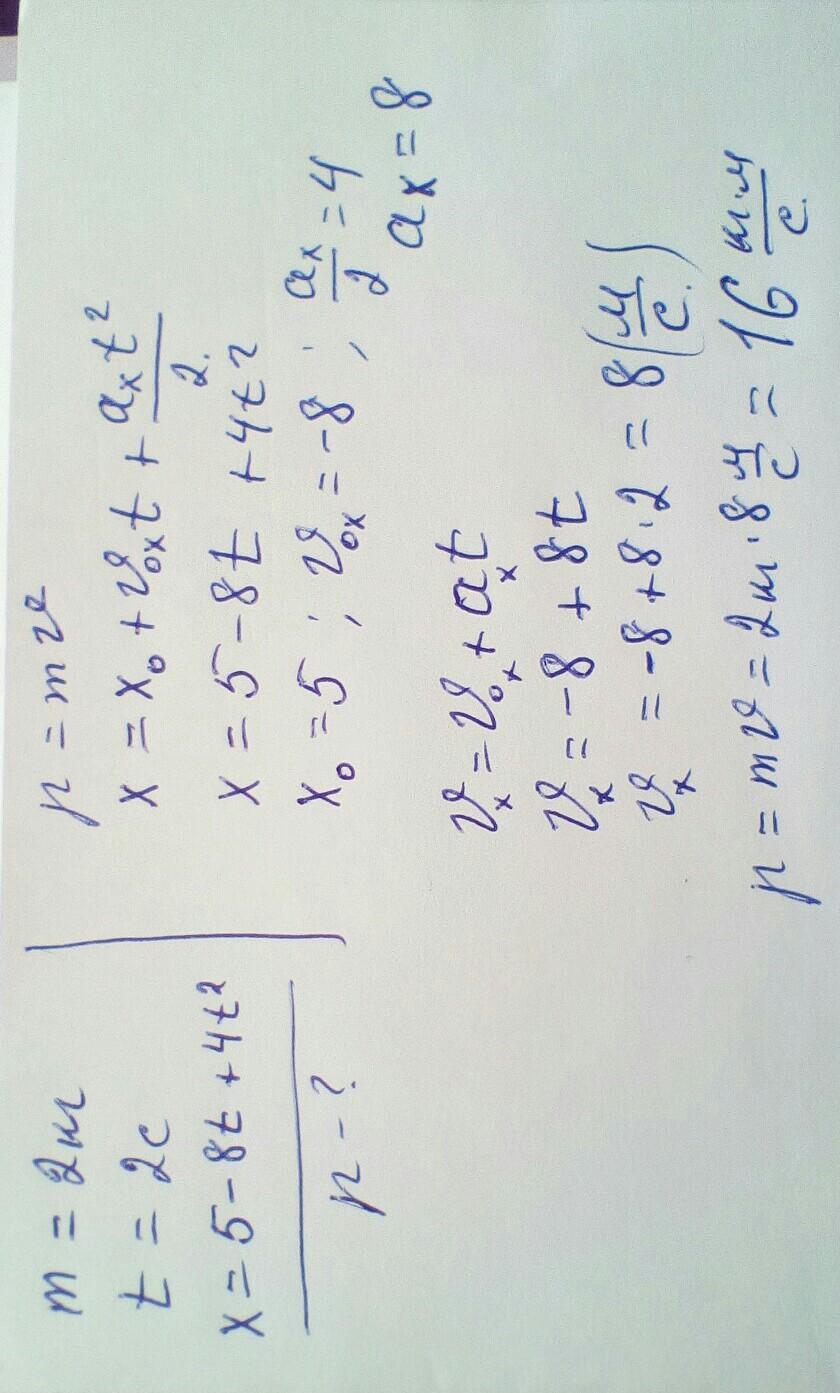 m = 2т
t = 2с
x = 5 - 8t + 4t²
p - ?
p = mv
x = x₀ + v₀ₓt + aₓt²/2
x = 5 - 8t + 4t²
x₀ = 5 ; v₀ₓ = -8 ; aₓ/2 = 4
aₓ = 8
vₓ = v₀ₓ + aₓt
vₓ = -8 + 8t
vₓ = -8 + 8·2 = 8 (м/с)
p = mv = 2т · 8 м/с = 16 т·м/с